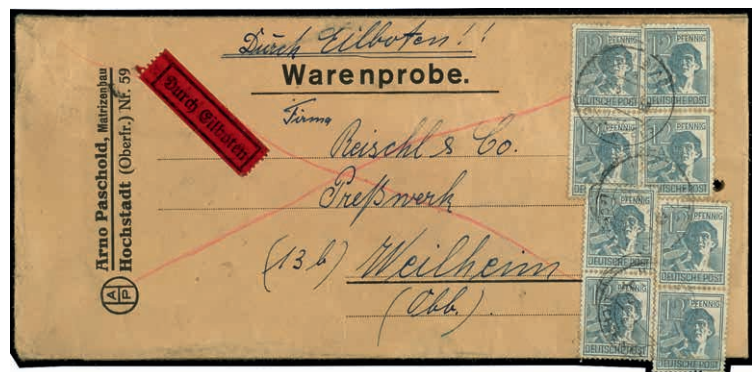 Durch Eilboten!!
Warenprobe.
Arno Paschold, Matrizenbau
Hochstadt (Oberfr.) Nr. 59
A P
Durch Eilboten
Firma
Reischl & Co.
Preßwerk
(13b) Weilheim
(Obb.)
12 PFENNIG
DEUTSCHE POST
12 PFENNIG
DEUTSCHE POST
PFENNIG
DEUTSCHE POST
PFENNIG
DEUTSCHE POST
PFENNIG
DEUTSCHE POST
12 PFENNIG
DEUTSCHE POST
PFENNIG
DEUTSCHE POST
12 PFENNIG
DEUTSCHE POST